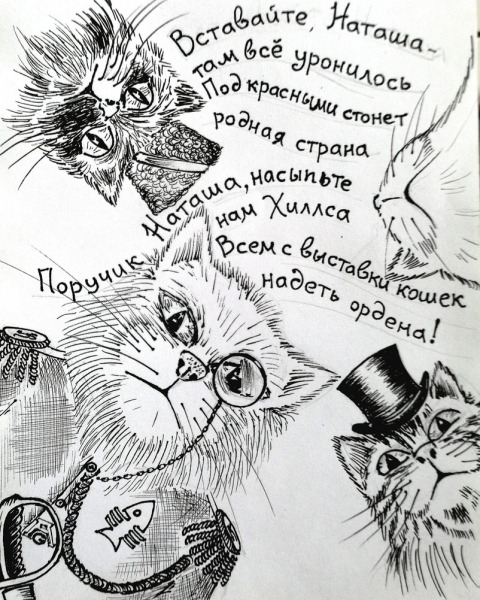 Вставайте, Наташа -
там всё уронилось
Под красными стонет
родная страна
Поручик Наташа, насыпьте
нам Хиллса
Всем с выставки кошек
надеть ордена!